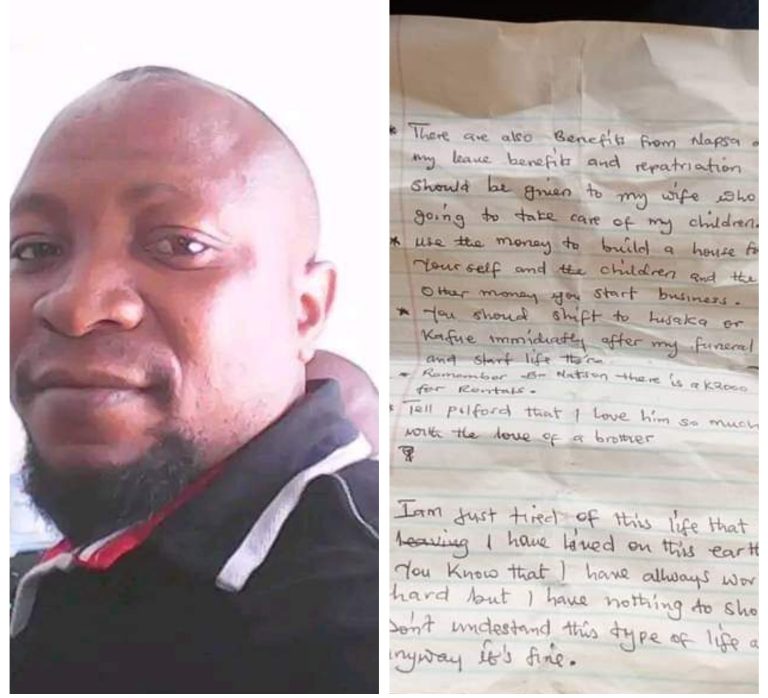 * There are also Benefits from Napsa
my leave benefits and repatriation
should be given to my wife who
going to take care of my children.
* use the money to build a house
Your self and the children and the
other money you start business.
* You should shift to Lusaka or
Kafue immidiatly after my funeral
and start life there
* Remember there is a K2000
for Rentals.
* Tell pilford that I love him so much
with the love of a brother
I am just tired of this life that
I have lived on this earth
You Know that I have allways
hard but I have nothing to
Don't undestand this type of life
anyway it's fine.